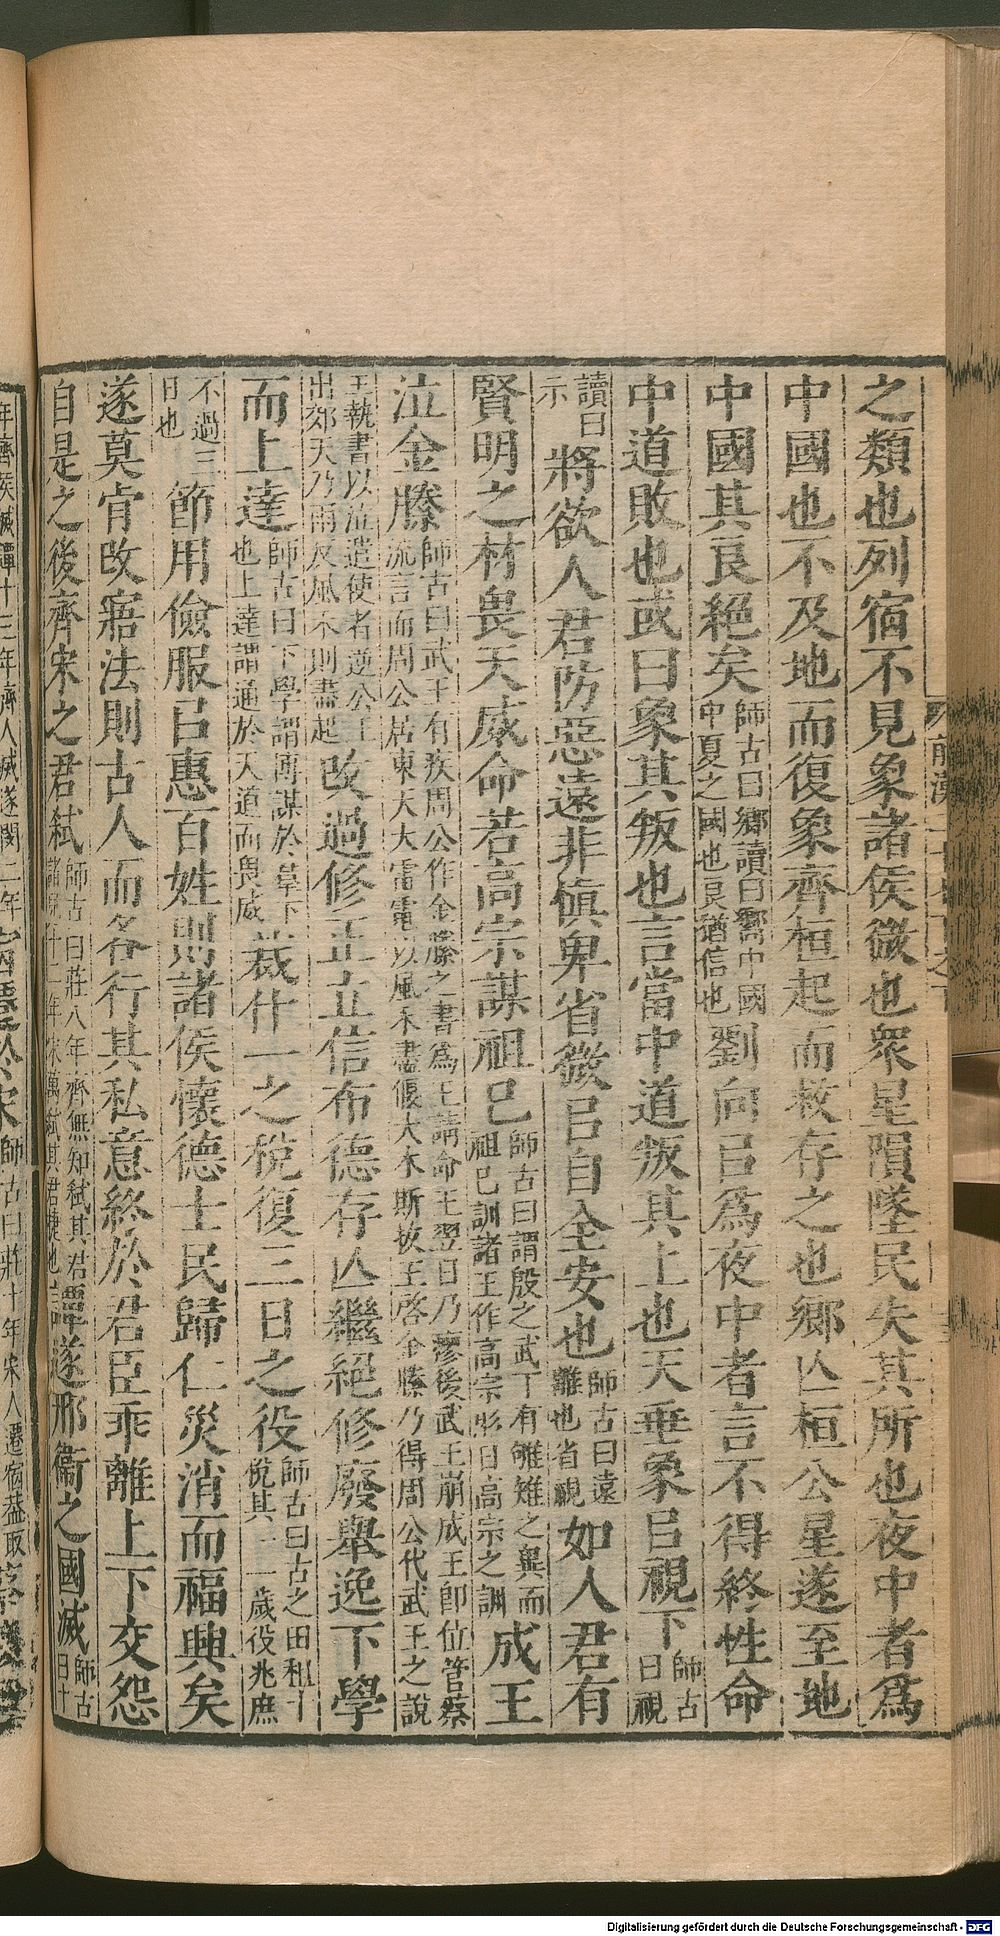 之類也列宿不見象諸侯微也衆星隕墜民失其所也夜中者爲
中國也不及地而復象齊桓起而救存之也鄉亾桓公星遂至地
中國其良絕矣師古曰鄉讀曰嚮中國中夏之國也良猶信也劉向㠯爲夜中者言不得終性命
中道敗也或曰象其叛也言當中道叛其上也天垂象㠯視下師古曰視
讀曰示將欲人君防惡遠非愼卑省微㠯自全安也師古曰遠離也省視如人君有
賢明之材畏天威命若高宗謀祖己師古曰謂殷之武丁有雊雉之異而祖己訓諸王作高宗肜日高宗之訓成王
泣金縢師古曰武王有疾周公作金縢之書爲王請命王翌日乃瘳後武王崩成王即位管蔡流言而周公居東天大雷電以風禾盡偃大木斯拔王啓金縢乃得周公代武王之說
王執書以泣遣使者逆公王出郊天乃雨反風禾則盡起改過修正立信布德存亾繼絕修廢舉逸下學
而上達師古曰下學謂博謀於羣下也上達謂通於天道而畏威裁什一之稅復三日之役師古曰古之田租十稅其一一歲役兆庶
不過三日也節用儉服㠯惠百姓則諸侯懷德士民歸仁災消而福興矣
遂莫肯改寤法則古人而各行其私意終於君臣乖離上下交怨
自是之後齊宋之君弒師古曰莊八年齊無知弒其君諸兒十二年宋萬弒其君捷也譚遂邢衞之國滅師古曰十
年齊侯滅譚十三年齊人滅遂閔二年
師古曰莊十年宋人遷宿蓋取
Digitalisierung gefördert durch die Deutsche Forschungsgemeinschaft - DFG